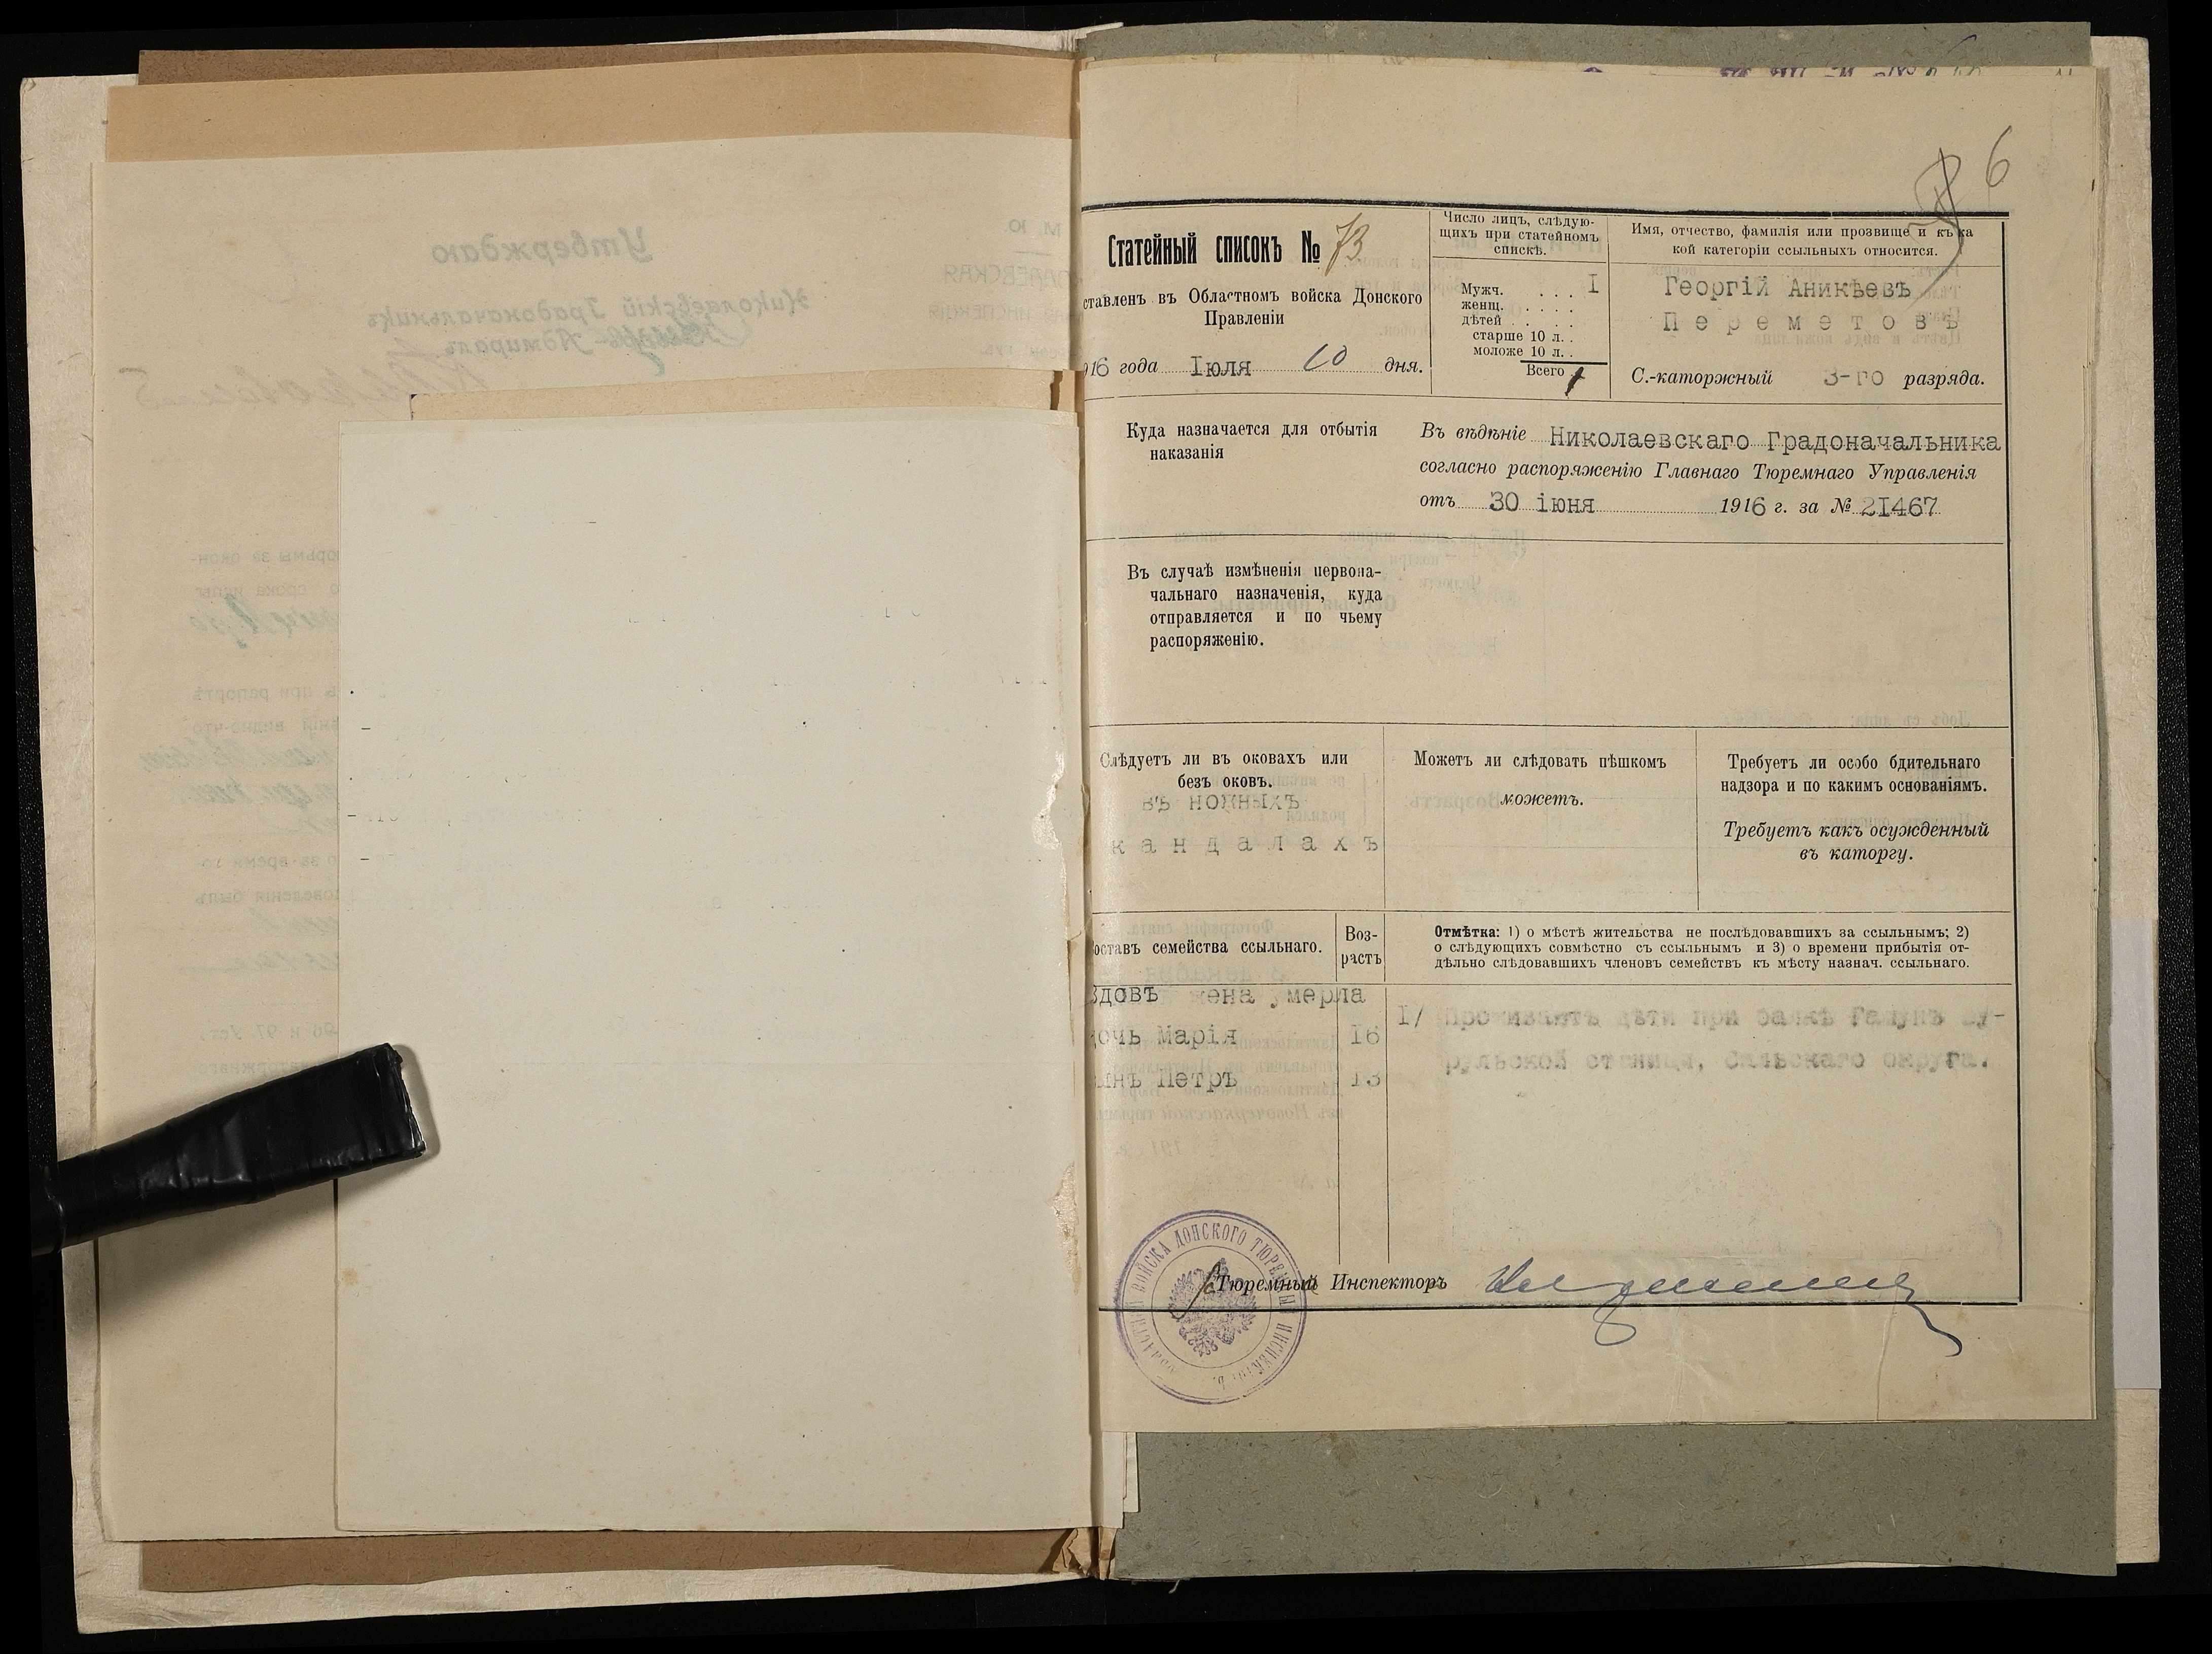 6
Статейный списокъ № 73
ставленъ въ Областномъ войска Донского
Правленіи
916 года Іюля 10 дня.
Число лицъ, слѣдую-
щихъ при статейномъ
спискѣ.
Мужч. . . . I
женщ. . . . .
дѣтей . . . .
старше 10 л. .
моложе 10 л. .
Всего 1
Имя, отчество, фамилія или прозвище и къ ка
кой категоріи ссыльныхъ относится.
Георгій Аникѣевъ
Переметовъ
С.-каторжный 3-го разряда.
Куда назначается для отбытія
наказанія
Въ вѣдѣніе Николаевскаго Градоначальника
согласно распоряженію Главнаго Тюремнаго Управленія
отъ 30 іюня 1916 г. за № 2I467
Въ случаѣ измѣненія первона-
чальнаго назначенія, куда
отправляется и по чьему
распоряженію.
Слѣдуетъ ли въ оковахъ или
безъ оковъ.
въ ножныхъ
кандалахъ
Можетъ ли слѣдовать пѣшкомъ
можетъ.
Требуетъ ли особо бдительнаго
надзора и по какимъ основаніямъ.
Требуетъ какъ осужденный
въ каторгу.
оставъ семейства ссыльнаго.
Воз-
растъ
Отмѣтка: 1) о мѣстѣ жительства не послѣдовавшихъ за ссыльнымъ; 2)
о слѣдующихъ совмѣстно съ ссыльнымъ и 3) о времени прибытія от-
дѣльно слѣдовавшихъ членовъ семействъ къ мѣсту назнач. ссыльнаго.
Вдовъ жена умерла
дочь Марія I6
ынъ Петръ I3
I/ Проживаютъ дѣти при балкѣ Гашунъ
рульской станицы, Сальскаго округа.
Тюремный Инспекторъ
ВОЙСКА ДОНСКОГО ТЮРЕМНЫЙ ИНСПЕКТОРЪ
Утверждаю
Николаевскій Градоначальникъ
Адмиралъ